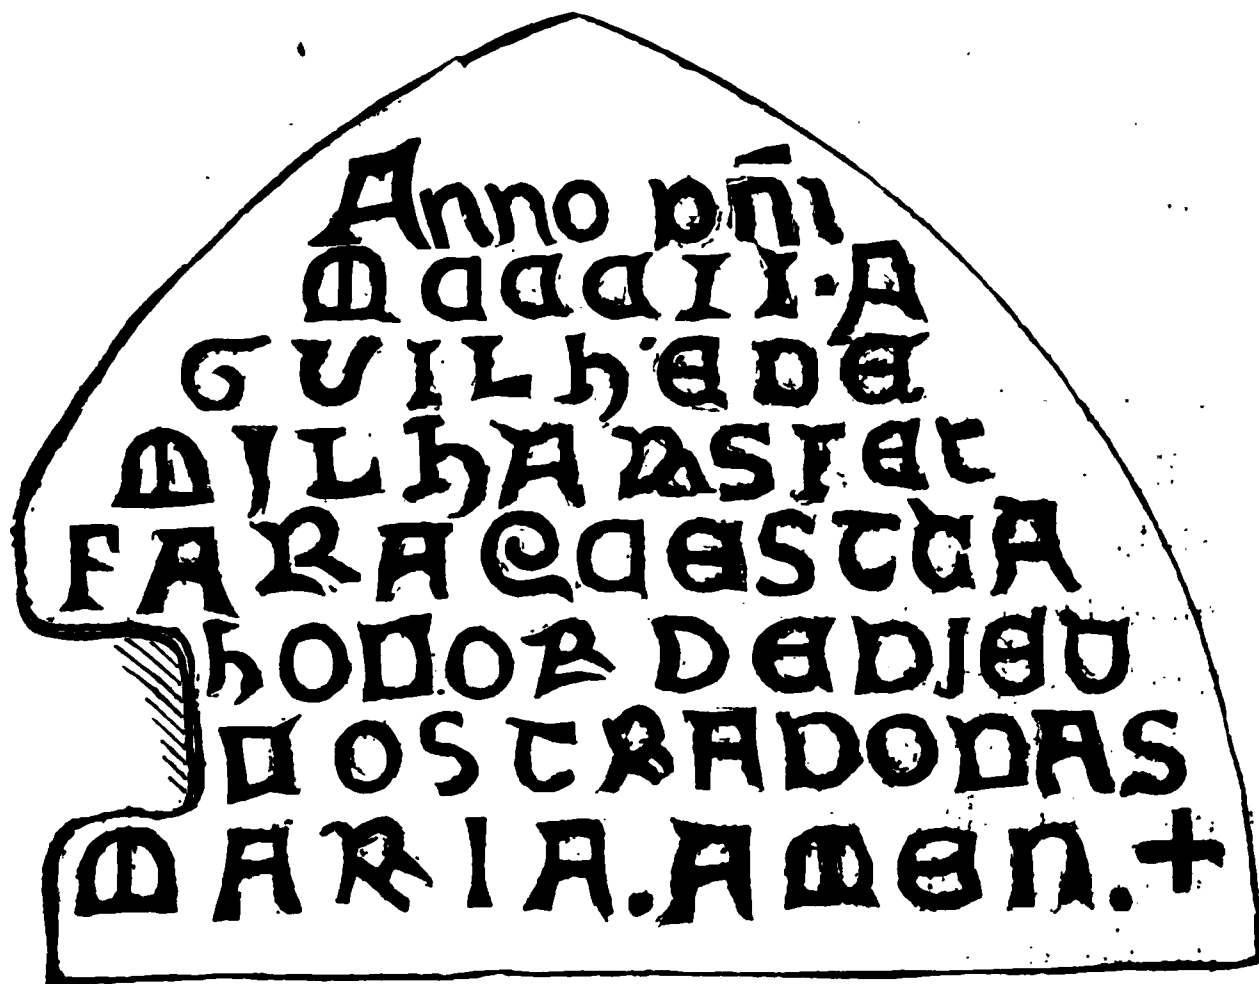 Anno DÑI
MCCCII·A
GUILH'EDE
MILHARSFET
FARAQUESTAA
hONOR DEDIEU
NOSTRADONAS
MARIA.AMEN.+